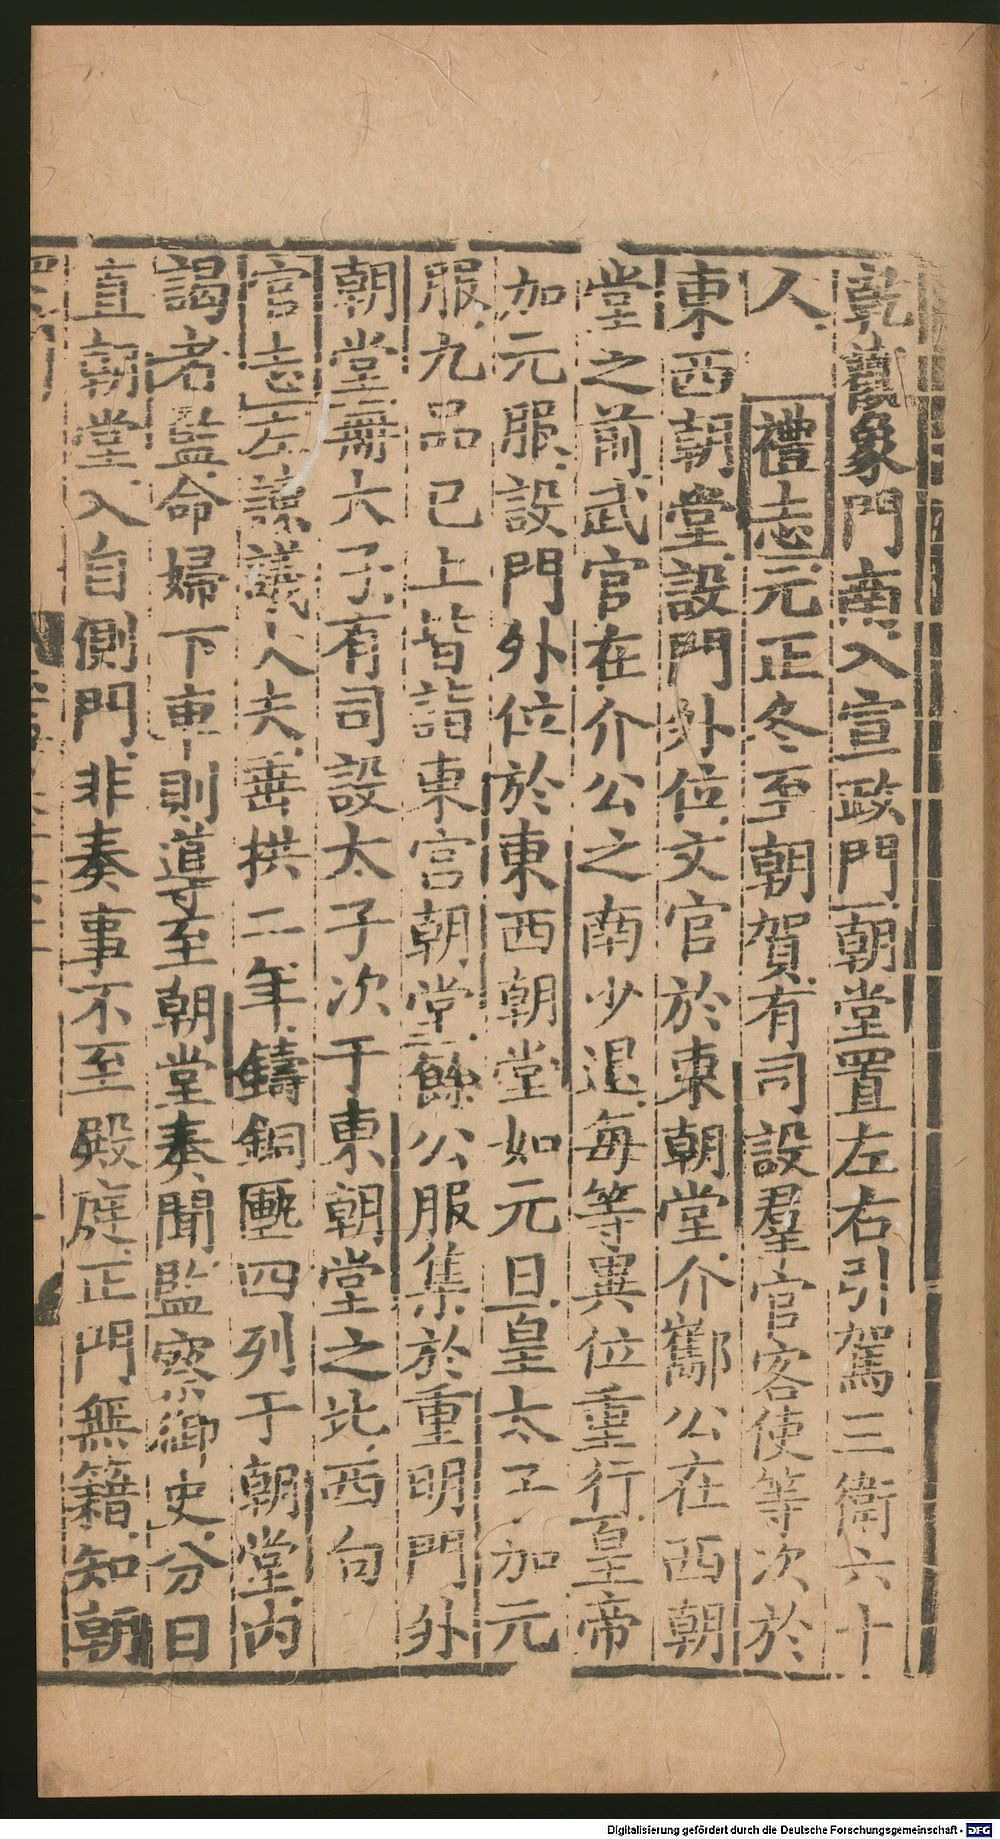 乾觀象門南入宣政門朝堂置左右引駕三衛六十
人 禮志元正冬至朝賀有司設羣官客使等次於
東西朝堂設門外位文官於東朝堂介酅公在西朝
堂之前武官在介公之南少退每等異位重行皇帝
加元服設門外位於東西朝堂如元日皇太子加元
服九品已上皆詣東宮朝堂餘公服集於重明門外
朝堂無太子有司設太子次于東朝堂之北西向
官志左諫議大夫垂拱二年鑄銅匭四列于朝堂內
謁者監命婦下車則導至朝堂奏聞監察御史分日
直朝堂入自側門非奏事不至殿庭正門無籍知朝
Digitalisierung gefördert durch die Deutsche Forschungsgemeinschaft - DFG